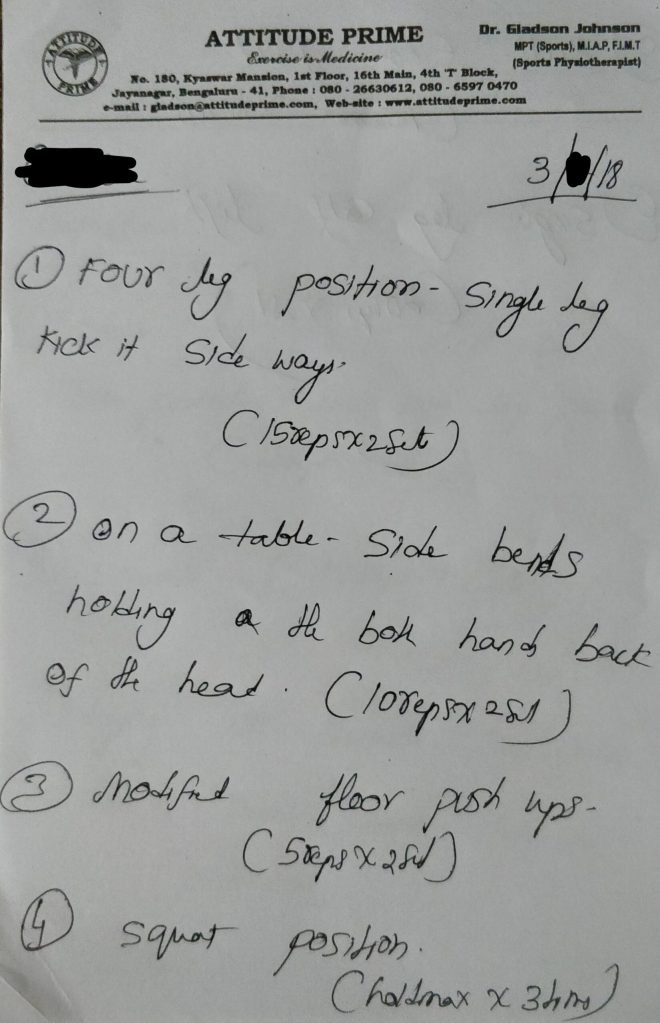 ATTITUDE PRIME
Exercise is Medicine
Dr. Gladson Johnson
MPT (Sports), M.I.A.P, F.I.M.T
(Sports Physiotherapist)
No. 180, Kyaswar Mansion, 1st Floor, 16th Main, 4th 'T' Block,
Jayanagar, Bengaluru - 41, Phone : 080 - 26630612, 080 - 6597 0470
e-mail : gladson@attitudeprime.com, Web-site : www.attitudeprime.com
ATTITUDE
PRIME
3/ /18
① Four leg position - Single leg
kick it Side ways.
(15reps x 2set)
② on a table - Side bends
holding the both hands back
of the head. (10reps x 2set)
③ Modified floor push ups -
(5reps x 2set)
④ squat position.
(hold max x 3times)